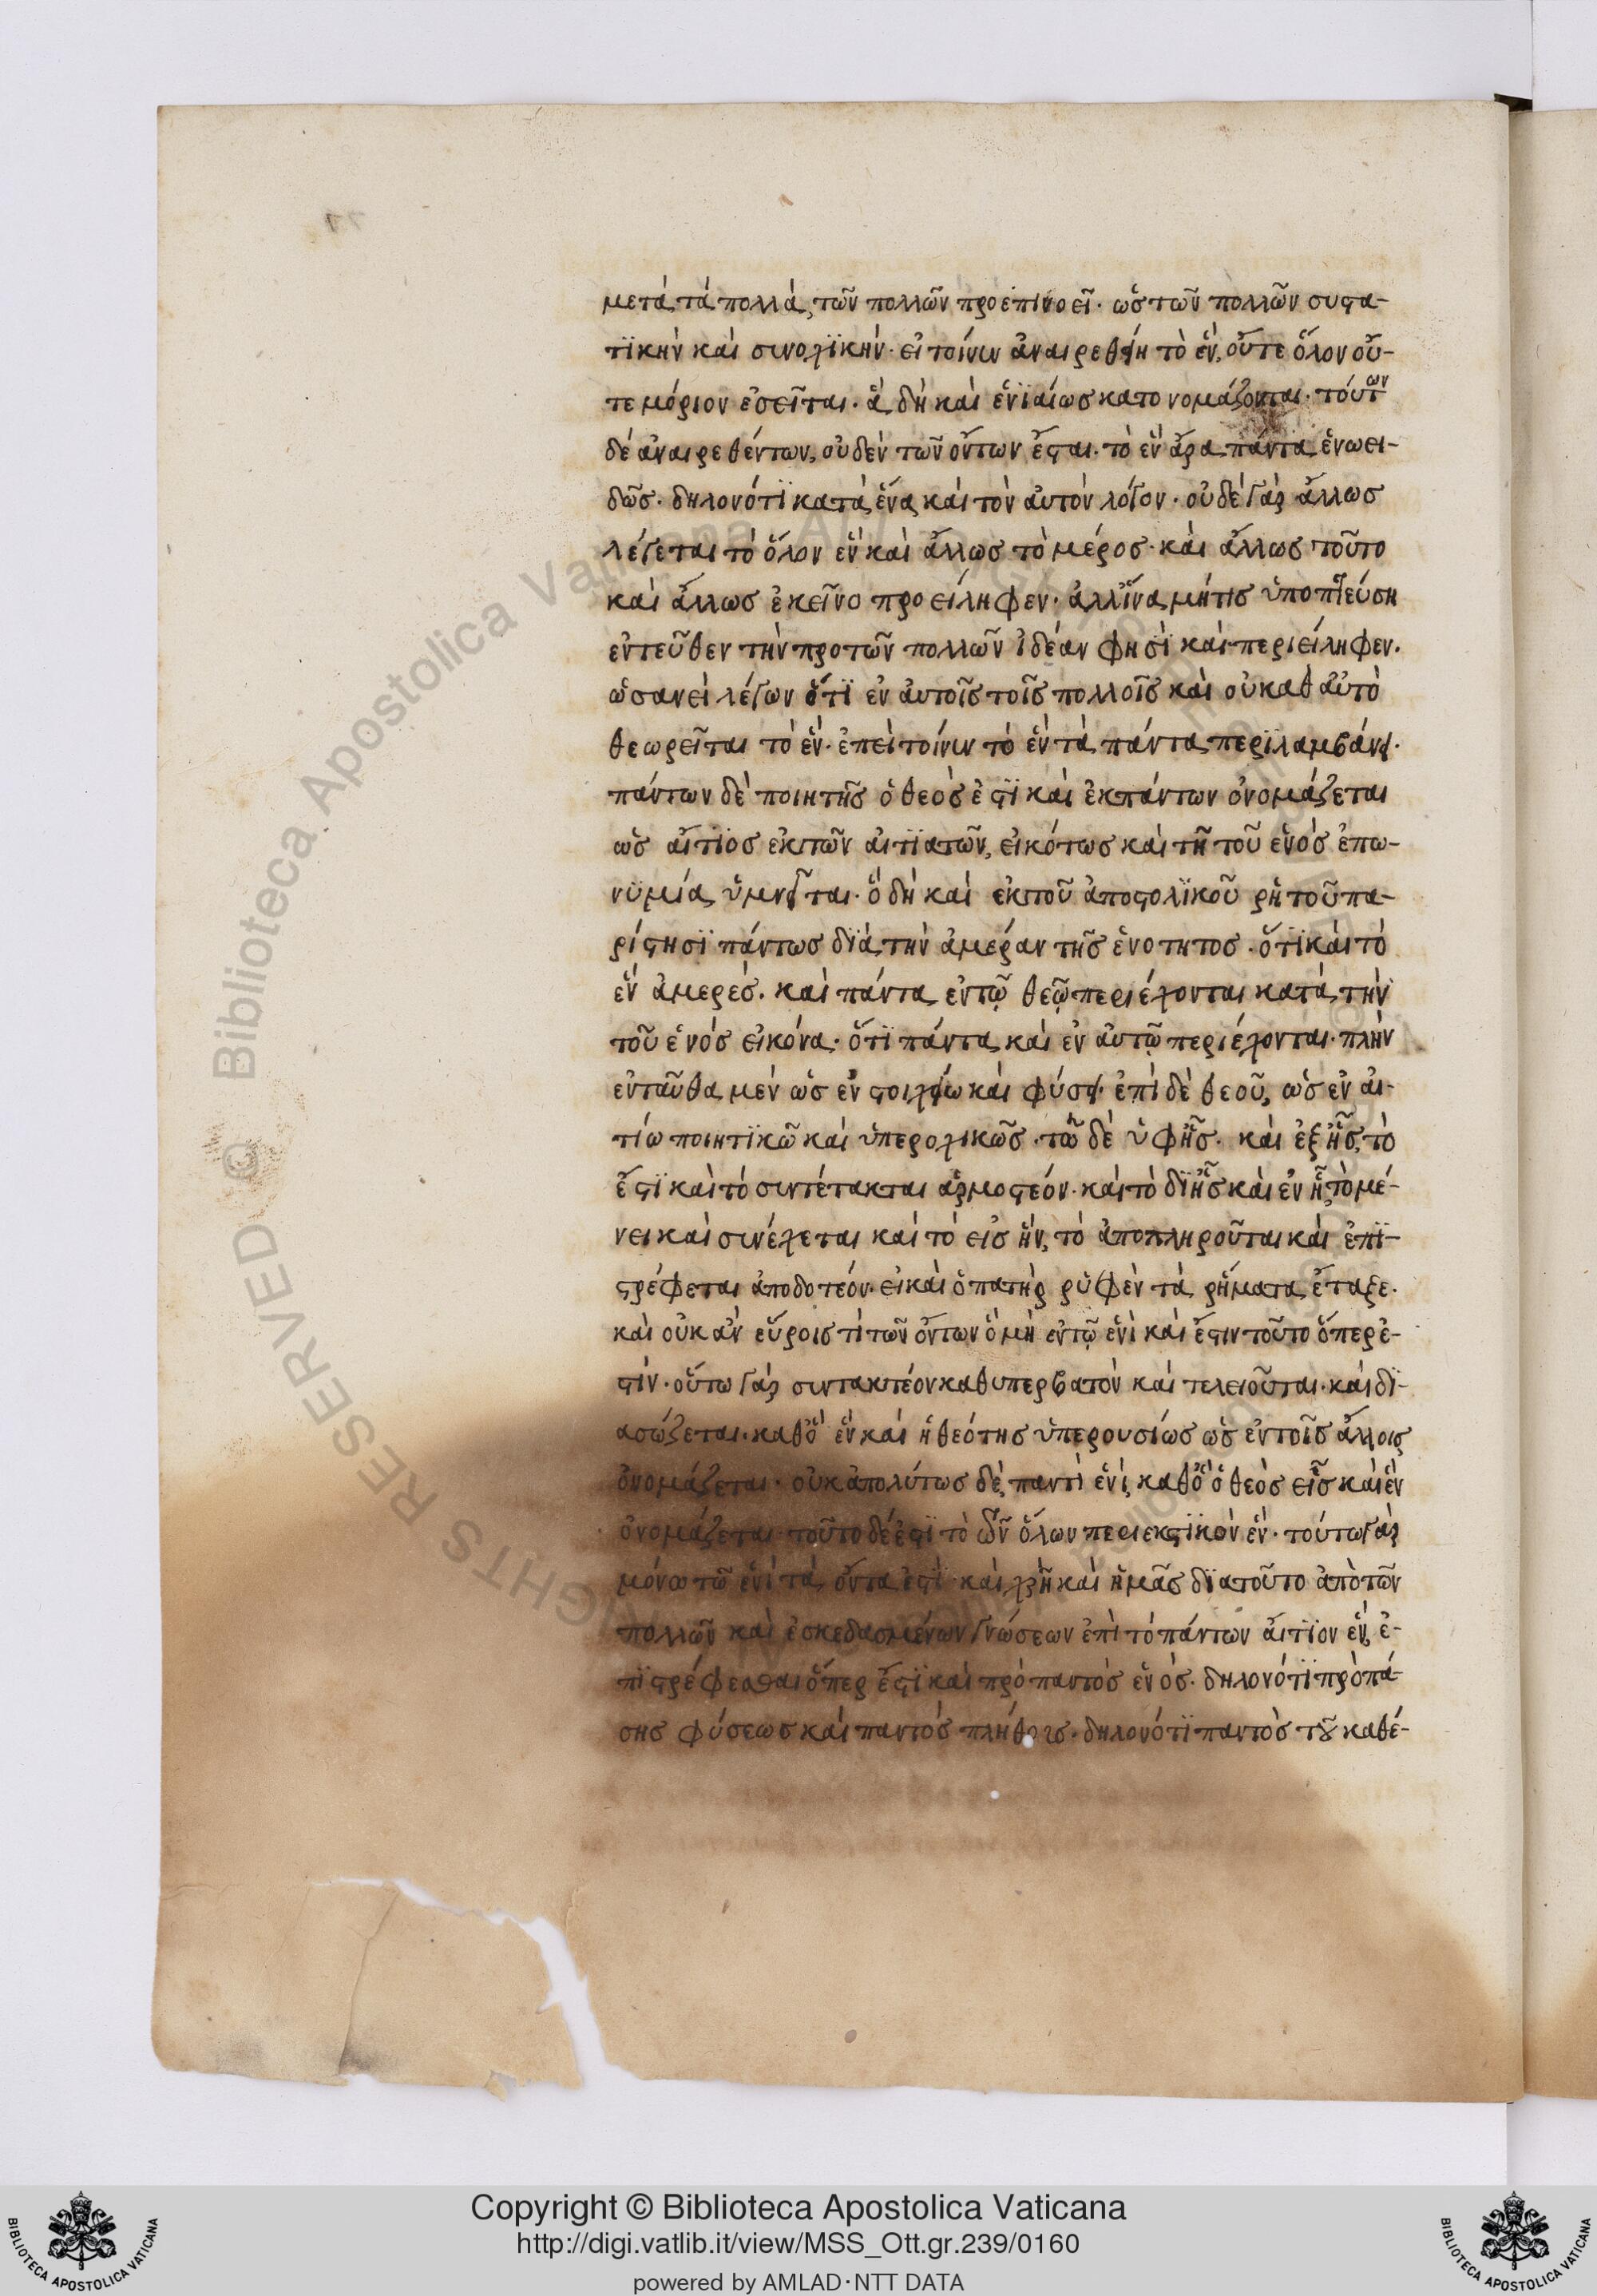 μετὰ τὰ πολλὰ, τῶν πολλῶν προεπινοεῖ· ὡς τῶν πολλῶν συστα-
τϊκὴν καὶ συνολϊκήν· εἰ τοίνυν ἀναιρεθείη τὸ ἓν, οὔτε ὅλον οὔ-
τε μόριον ἐσεῖται· ἃ δὴ καὶ ἑνϊαίως κατονομάζονται· τούτων
δὲ ἀναιρεθέντων, οὐδὲν τῶν ὄντων ἔσται· τὸ ἓν ἄρα πάντα ἑνωει-
δῶς· δηλονότϊ κατὰ ἕνα καὶ τὸν αὐτὸν λόγον· οὐδὲ γὰρ ἄλλως
λέγεται τὸ ὅλον ἓν καὶ ἄλλως τὸ μέρος· καὶ ἄλλως τοῦτο
καὶ ἄλλως ἐκεῖνο προείληφεν· ἀλλ' ἵνα μήτις ὑποπτεύση
ἐντεῦθεν τὴν προτῶν πολλῶν ἰδέαν φησὶ καὶ περιείληφεν·
ὡσανεὶ λέγων ὅτϊ ἐν αὐτοῖς τοῖς πολλοῖς καὶ οὐ καθ αὑτὸ
θεωρεῖται τὸ ἕν· ἐπεὶ τοίνυν τὸ ἓν τὰ πάντα περϊλαμβάνει·
πάντων δὲ ποιητὴς ὁ θεὸς ἐστϊ καὶ ἐκ πάντων ὀνομάζεται
ὡς αἴτϊος ἐκ τῶν αἰτϊατῶν, εἰκότως καὶ τῆ τοῦ ἑνὸς ἐπω-
νϋμία ὑμνεῖται· ὃ δὴ καὶ ἐκ τοῦ ἀποστολϊκοῦ ῥητοῦ πα-
ρίστησϊ πάντως δϊὰ τὴν ἀμεράν τῆς ἑνότητος· ὅτϊ καὶ τὸ
ἓν ἀμερές· καὶ πάντα ἐν τῷ θεῷ περιέχονται κατὰ τὴν
τοῦ ἑνὸς εἰκόνα· ὅτϊ πάντα καὶ ἐν αὐτῷ περιέχονται· πλὴν
ἐνταῦθα μὲν ὡς ἐν στοιχείω καὶ φύσει· ἐπὶ δὲ θεοῦ, ὡς ἐν αἰ-
τίω ποιητϊκῶ καὶ ὑπεροχικῶς· τῶ δὲ ὑφῆς· καὶ ἐξῆς, τὸ
ἔστϊ καὶ τὸ συντέτακται ἁρμοστέον· καὶ τὸ δϊῆς καὶ ἐν ᾗ, τὸ μέ-
νει καὶ συνέχεται καὶ τὸ εἰς ἣν, τὸ ἀποπληροῦται καὶ ἐπϊ-
στρέφεται ἀποδοτέον· εἰ καὶ ὁ πατὴρ ῥύφὲν τὰ ῥήματα ἔταξε·
καὶ οὐκ ἂν εὕροις τὶ τῶν ὄντων ὃ μὴ ἐν τῷ ἑνὶ καὶ ἔστιν τοῦτο ὅπερ ἐ-
στίν· οὕτω γὰρ συντακτέον καθυπερβατὸν καὶ τελειοῦται· καὶ δϊ-
ασώζεται· καθ' ὃ ἓν καὶ ἡ θεότης ὑπερουσίως ὡς ἐν τοῖς ἄλλοις
ὀνομάζεται· οὐκ ἀπολύτως δὲ παντὶ ἑνὶ, καθ' ὃ ὁ θεὸς εἷς καὶ ἓν
ὀνομάζεται· τοῦτο δέ ἐστϊ τὸ τῶν ὅλων περιεκτϊκὸν ἕν· τούτω γὰρ
μόνω τῶ ἑνὶ τὰ ὄντα ἐστϊ· καὶ χρὴ καὶ ἡμᾶς δϊατοῦτο ἀπὸ τῶν
πολλῶν καὶ ἐσκεδασμένων γνώσεων ἐπὶ τὸ πάντων αἴτϊον ἓν, ἐ-
πϊστρέφεσθαι ὅπερ ἔστϊ καὶ πρὸ παντὸς ἑνός· δηλονότϊ πρὸ πά-
σης φύσεως καὶ παντὸς πλήθους· δηλονότϊ παντὸς τοῦ καθέ-
Copyright © Biblioteca Apostolica Vaticana
http://digi.vatlib.it/view/MSS_Ott.gr.239/0160
powered by AMLAD·NTT DATA
BIBLIOTECA APOSTOLICA VATICANA
BIBLIOTECA APOSTOLICA VATICANA